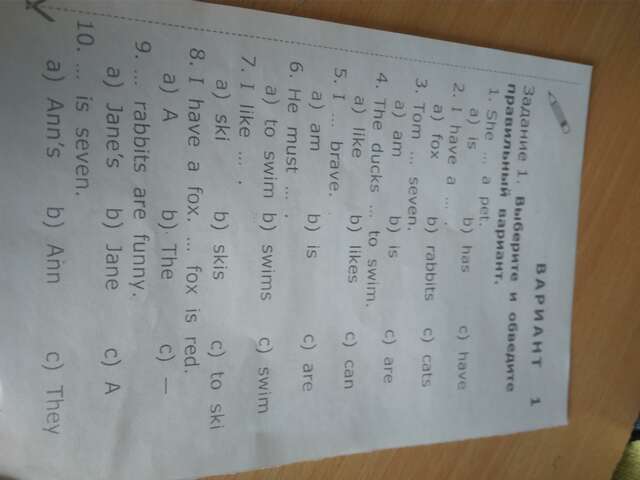 ВАРИАНТ 1
Задание 1. Выберите и обведите
правильный вариант.
1. She ... a pet.
a) is b) has c) have
2. I have a ... .
a) fox b) rabbits c) cats
3. Tom ... seven.
a) am b) is c) are
4. The ducks ... to swim.
a) like b) likes c) can
5. I ... brave.
a) am b) is c) are
6. He must ... .
a) to swim b) swims c) swim
7. I like ... .
a) ski b) skis c) to ski
8. I have a fox. ... fox is red.
a) A b) The c) —
9. ... rabbits are funny.
a) Jane's b) Jane c) A
10. ... is seven.
a) Ann's b) Ann c) They